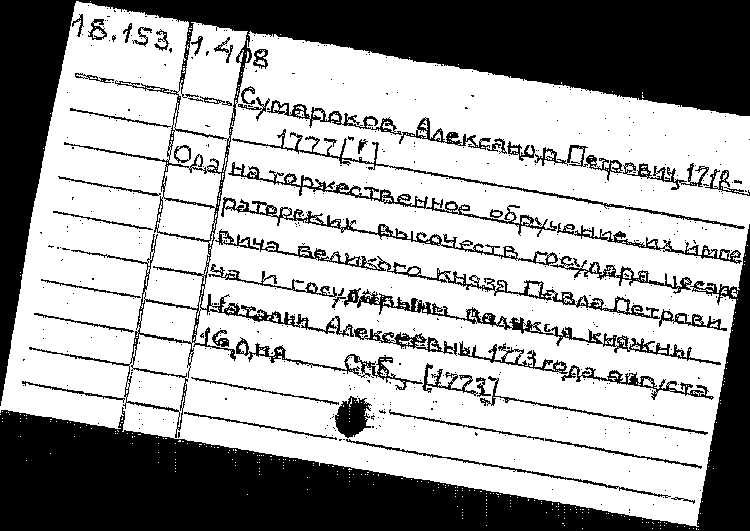 18.153. 1.408
Сумароков, Александр Петрович, 1718-
1777[!]
Ода на торжественное обручение их импе
раторских высочеств государя цесаре
вича великого князя Павла Петрови
ча и государыни великия княжны
Наталии Алексеевны 1773 года августа
16 дня Спб., [1773].